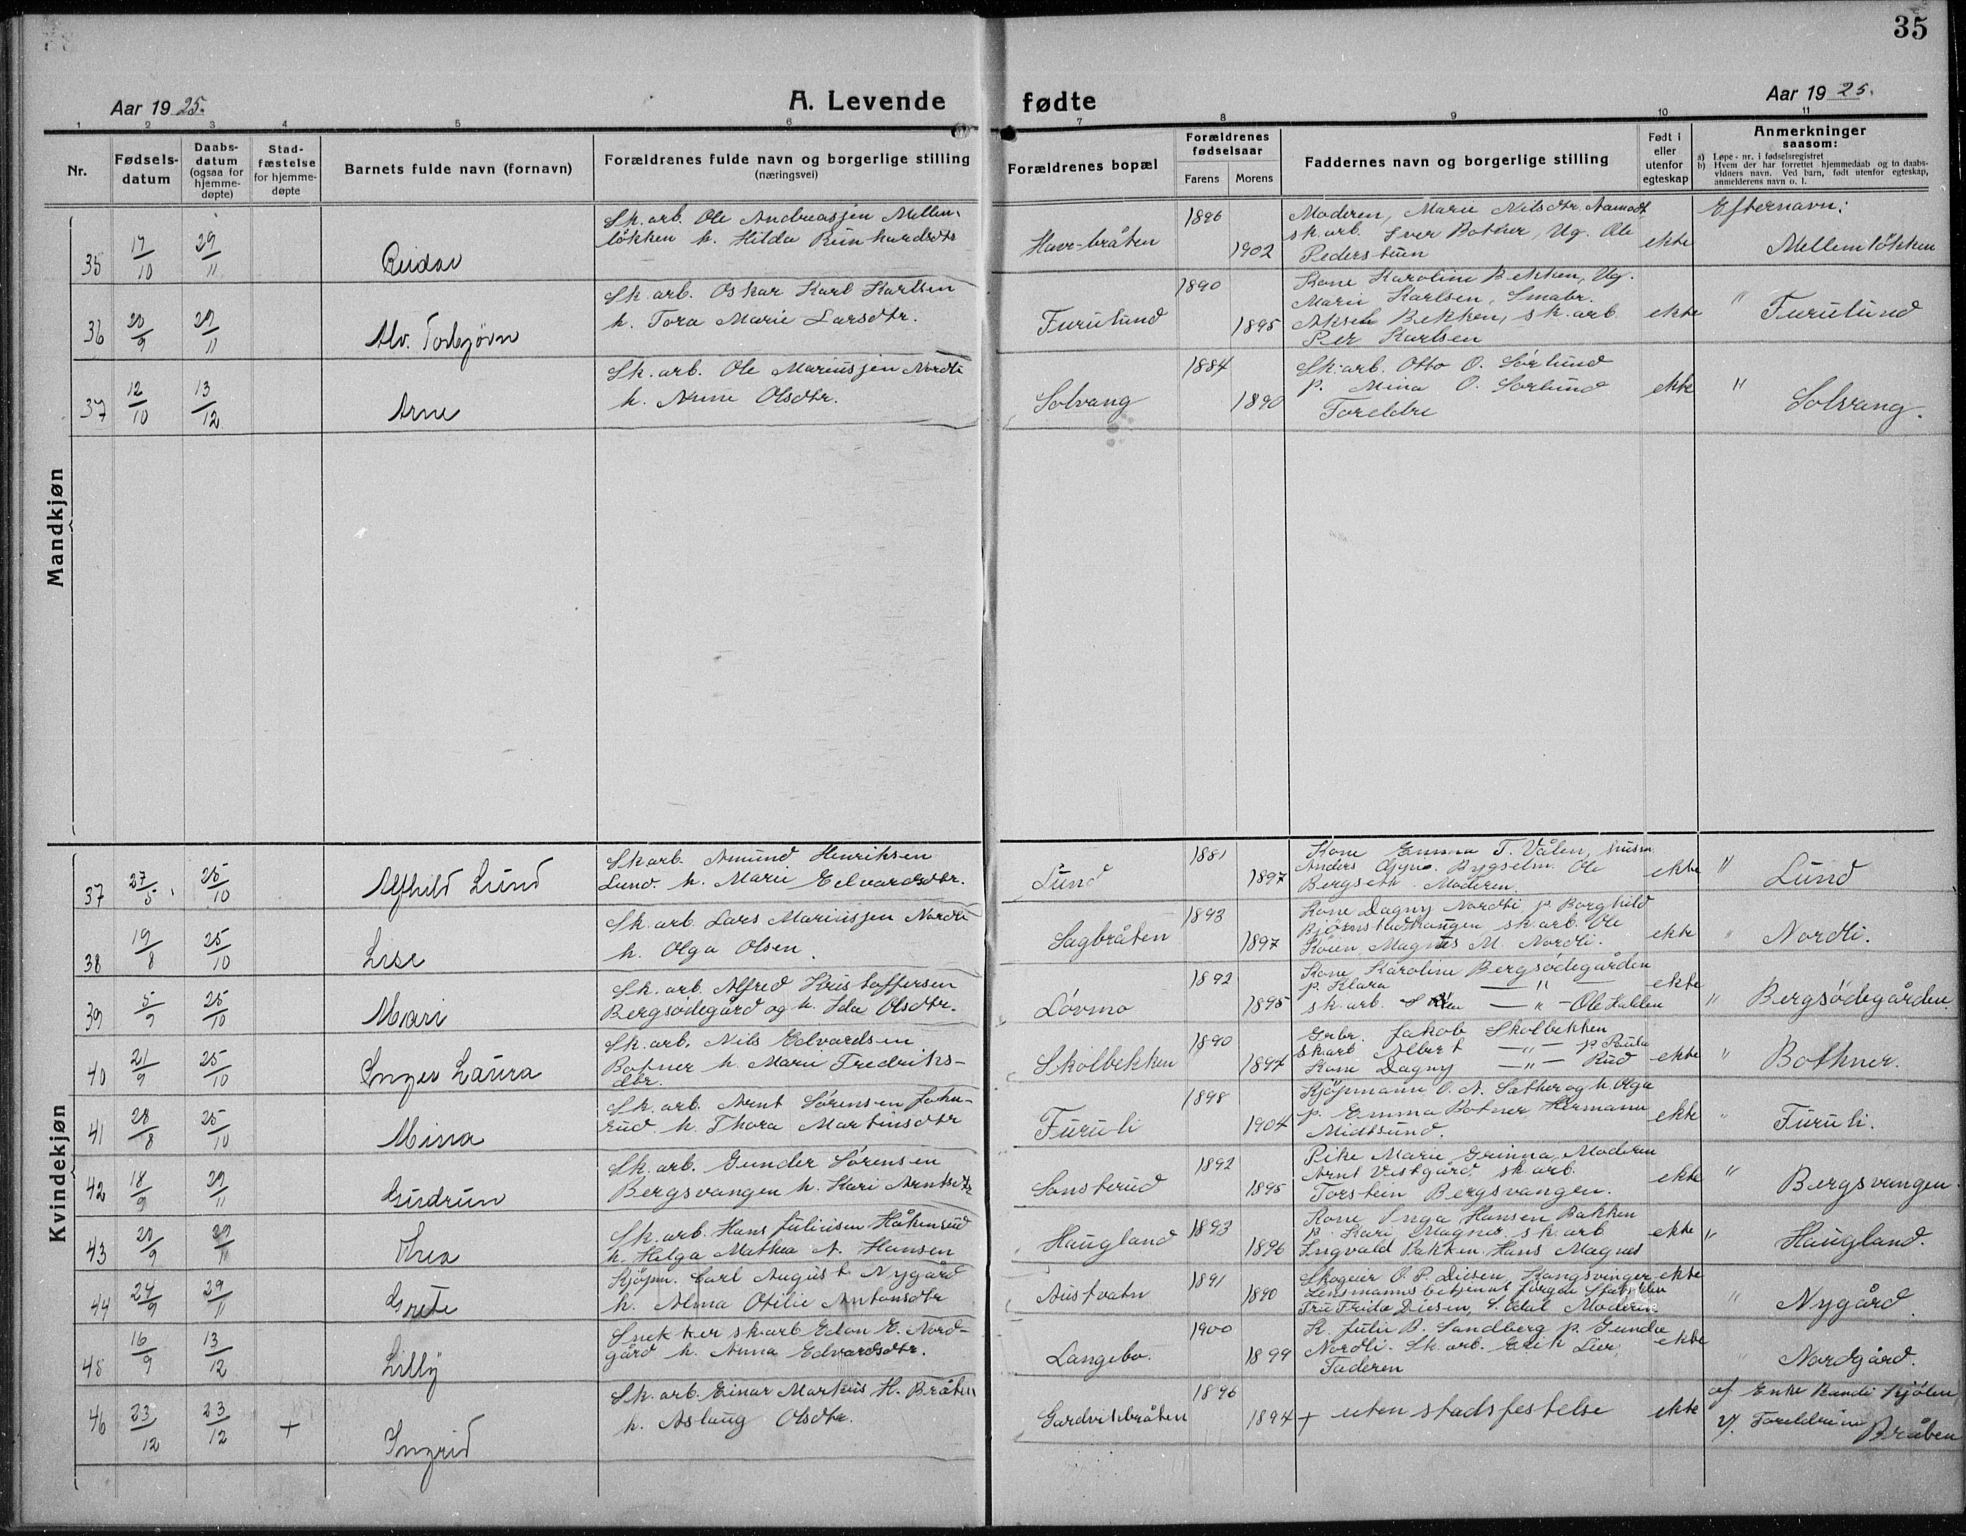 35
Aar 1925.
A. Levende fødte
Aar 1925.
1 2 3 4 5 6 7 8 9 10 11
Nr.
Fødsels-
datum
Daabs-
datum
(ogsaa for
hjemme-
døpte)
Stad-
fæstelse
for hjemme-
døpte
Barnets fulde navn (fornavn)
Forældrenes fulde navn og borgerlige stilling
(næringsvei)
Forældrenes bopæl
Forældrenes
fødselsaar
Farens Morens
Faddernes navn og borgerlige stilling
Født i
eller
utenfor
egteskap
Anmerkninger
saasom:
a) Løpe-nr. i fødselsregistret
b) Hvem der har forrettet hjemmedaab og to daabs-
vidners navn. Ved barn, født utenfor egteskap,
anmelderens navn o. l.
Mandkjøn
35 17/10 29/11 Reidar
Sk. arb. Ole Andreassen Mellem-
løkken h. Hilda
1896 1902
Moderen, Marie Nilsdtr. Aamodt
sk. arb. Iver Botner, Ug. Ole
Pederstuen
ekte
Efternavn:
Mellemløkken
36 20/9 29/11 Alv. Torbjørn
Sk. arb. Oskar Karl Karlsen
h. Tora Marie Larsdtr.
Furulund
1890 1895
Kone Karoline Bekken, Ug.
Marie Karlsen, Smabr.
Aksel Bekken, sk. arb
Per Karlsen
ekte
" Furulund
37 12/10 13/12 Arne
Sk. arb. Ole Mariussen Nordli
h. Olsdtr.
Solvang
1884 1890
Sk. arb. Otto O. Sørlund
p. Mina O. Sørlund
Foreldre
ekte
" Solvang.
Kvindekjøn
37 27/5 25/10 Alfhild Lund
Sk arb. Amund Henriksen
Lund. h. Marie Edvardsdtr.
Lund
1881 1897
Kone Emma T. Vålen,
Anders Ole
Bergseth Moderen.
ekte
" Lund
38 19/8 25/10 Lise
Sk. arb. Lars Mariussen Nordli
h. Olga Olsen.
Sagbråten
1893 1897
Kone Dagny Nordli p. Borghild
sk. arb. Ole
Magnus M. Nordli.
ekte
" Nordli.
39 5/9 25/10 Mari
Sk. arb. Alfred Kristoffersen
Bergsødegård og h. Ida Olsdtr.
Løvmo
1892 1895
Kone Karoline Bergsødegården
p. Klara — " —
sk. arb. — " — Ole Hallen
ekte
" Bergsødegården.
40 21/9 25/10 Inger Laura
Sk. arb. Nils Edvardsen
Botner h. Marie Fredriks-
dtr.
Skolbekken
1890 1894
Grbr. Jakob Skolbekken
sk arb Albert — " — p. Paula
Kone Dagny — " — Rud
ekte
" Bothner.
41 28/8 25/10 Minna
Sk. arb. Arnt Sørensen John-
rud h. Thora Martinsdtr
Furuli
1898 1904
Kjøpmann O. A. Sæther og h. Olga
p. Emma Botner Hermann
Midtsund.
ekte
" Furuli.
42 18/9 29/11 Gudrun
Sk. arb. Gunder Sørensen
Bergsvangen h. Kari Arntsdtr
Sønsterud
1892 1895
Pike Marie Grinna, Moderen
Arnt Vestgård, sk. arb.
Torstein Bergsvangen.
ekte
" Bergsvangen.
43 20/9 29/11 Thea
Sk. arb. Hans Juliusen Håkenrud
h. Helga Mathea A. Hansen
Haugland
1893 1896
Kone Inga Hansen Bakken
p. Kari Magnes sk. arb
Ingvald Bakken, Hans Magnes
ekte
" Haugland.
44 24/9 29/11 Grete
Kjøpm. Carl August Nygård
h. Alma Otilie Antonsdtr
Austvatn
1891 1890
Skogeier O. P. Diesen, Kongsvinger
Lensmannsbetjent Jørgen
Fru Frida Diesen, S. Odal Moderen
ekte
" Nygård.
45 16/9 13/12 Lilly
Snekker sk arb Edon E. Nord-
gård h. Anna Edvardsdtr.
Langebo.
1900 1899
K. Julie B. Sandberg p. Gunda
Nordli. Sk. arb. Erik Lier,
Faderen
ekte
" Nordgård.
46 23/12 23/12 + Ingrid
Sk. arb. Einar Markus H. Bråten
h. Aslaug Olsdtr.
Gardvikbråten
1896 1894
+ uten stadsfestelse
ekte
af Enke Randi Kjølen
v/. Foreldrene
Bråten